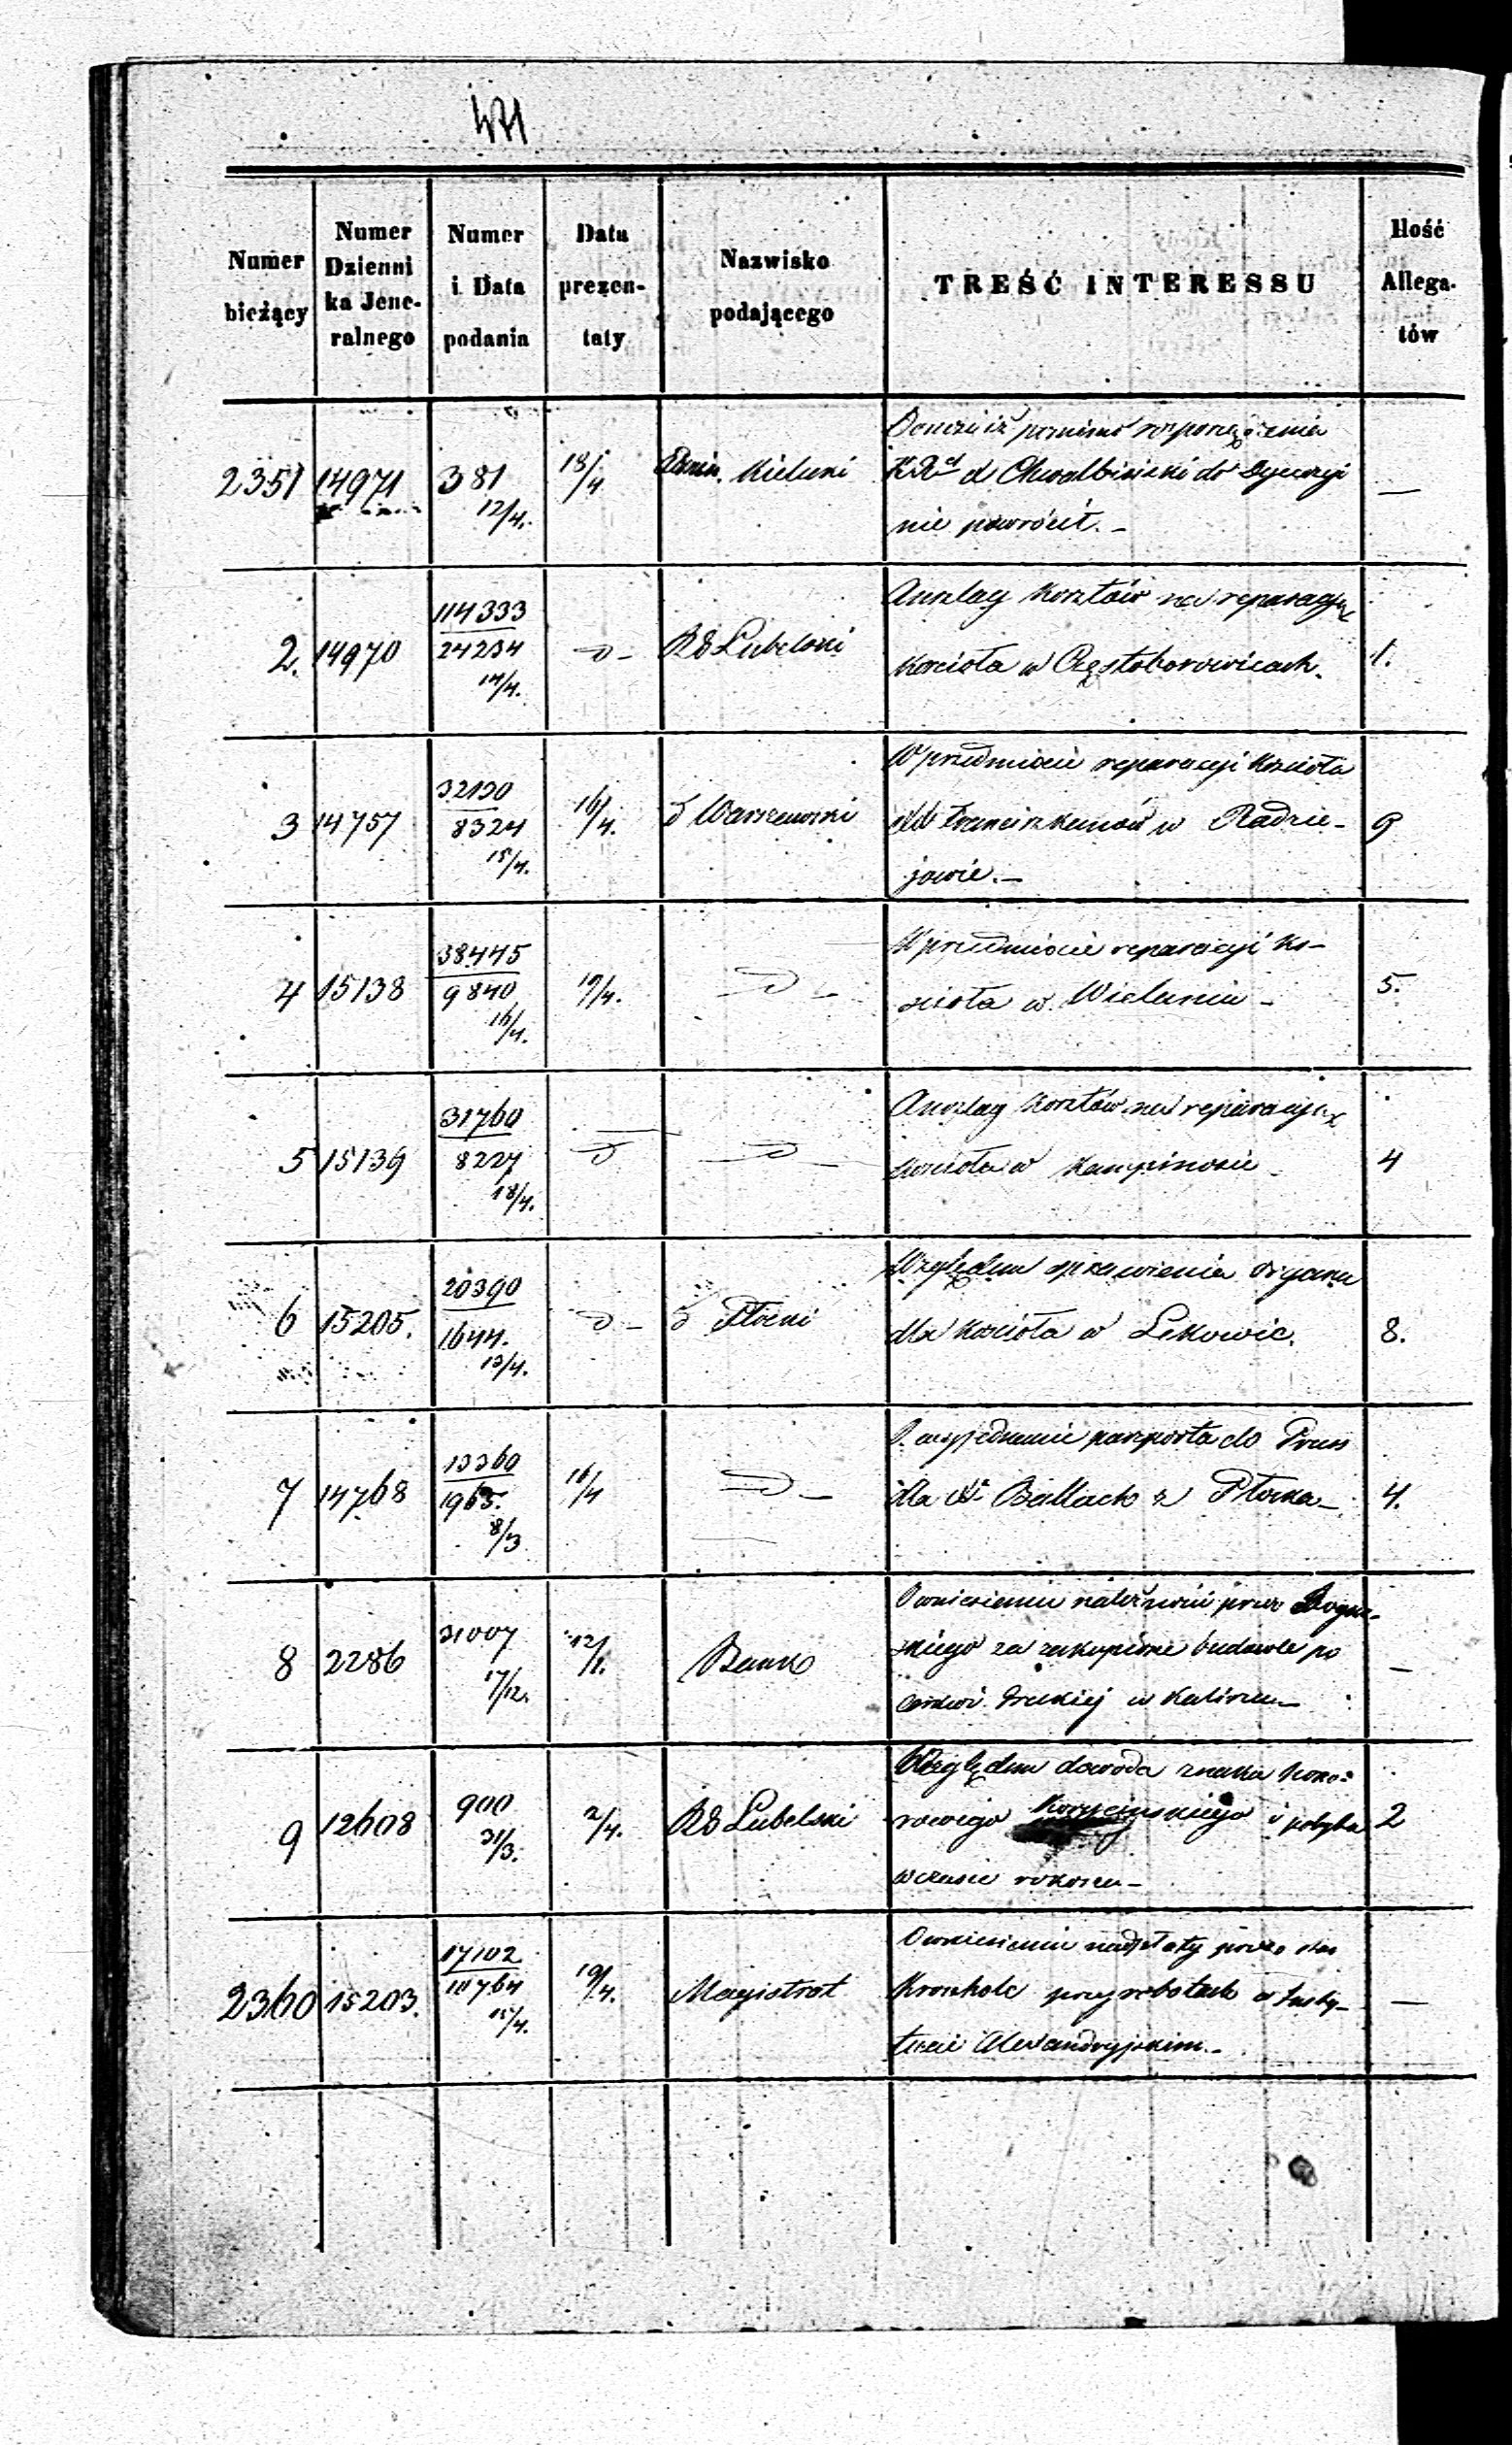 Numer bieżący | Numer Dzienni ka Jene- ralnego | Numer i Data podania | Data prezen- taty | Nazwisko podającego | TREŚĆ INTERESSU | Ilość Allega- tów
2351 | 14971 | 381 12/4. | 18/4 | Kielecki | Donosi iż pomimo rozporządzenia
Chwalbiński do Dyecezji
nie powrócił. – | —
2. | 14970 | 114333 24234 14/4. | d – | RG Lubelski | Anszlag kosztów na reparacyę
kościoła w Częstoborowicach. | 1.
3 | 14757 | 32130 8324 15/4. | 16/4. | d Warszawski | W przedmiocie reparacyi kościoła
Franciszkanów w Radzie-
jowie. – | 9
4 | 15138 | 38445 9840 16/4. | 19/4. | d – | W przedmiocie reparacyi ko-
ścioła w Wieluniu – | 5.
5 | 15139 | 31760 8227 18/4. | d | d – | Anszlag kosztów na reparacyę
kościoła w Kampinosie – | 4
6 | 15205. | 20390 1644. 13/4. | d – | d Płocki | Względem sprawienia organu
dla kościoła w Lekowie. | 8.
7 | 14768 | 13360 1965. 8/3 | 16/4 | d – | O wyjednanie paszportu do Pruss
dla Ballach z Płocka – | 4.
8 | 2286 | 31007 17/12. | 12/1. | Bank | O wniesieniu należności przez
skiego za zakupione budowle po
cerkwi Greckiej w Kaliszu – | —
9 | 12608 | 900 31/3. | 2/4. | RG Lubelski | Względem dowodu znaku hono-
rowego Korycińskiego i pobytu
w czasie rokoszu – | 2
2360 | 15203. | 17102 10764 15/4. | 19/4. | Magistrat | O wniesieniu nadpłaty przez
Kronholc przy robotach w Insty-
tucie Alexandryjskim. – | —